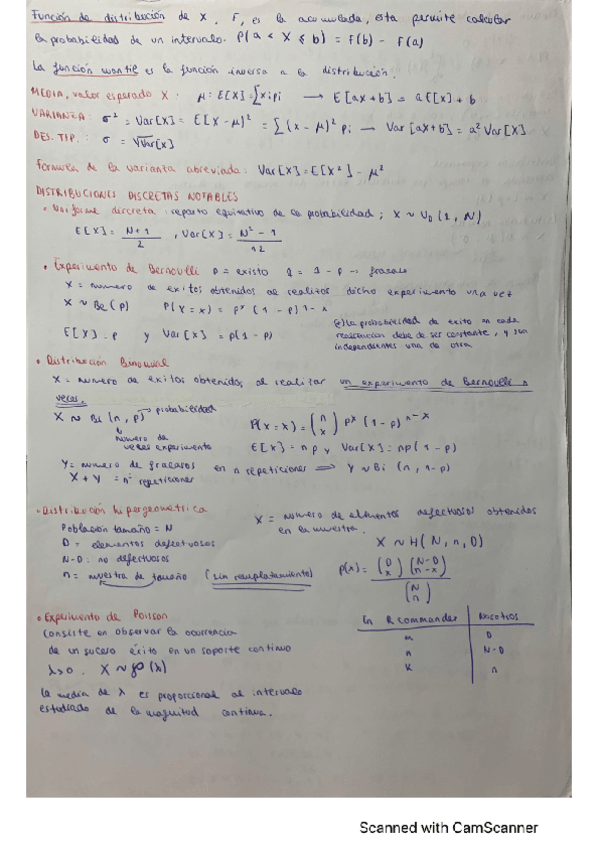 Función de distribución de X, F, es la acumulada, esta permite calcular
la probabilidad de un intervalo. P(a < X ≤ b) = F(b) - F(a)
La función cuantil es la función inversa a la distribución.
MEDIA, valor esperado X: μ = E[X] = ∑ xi pi → E[ax+b] = a E[x] + b
VARIANZA: σ² = Var[X] = E[X - μ]² = ∑(x - μ)² pi → Var[ax+b] = a² Var[X]
DES. TIP.: σ = √Var[x]
Formula de la varianza abreviada: Var[X] = E[X²] - μ²
DISTRIBUCIONES DISCRETAS NOTABLES
• Uniforme discreta: reparto equitativo de la probabilidad; X ~ U_D(1, N)
E[X] = (N+1)/2, Var[X] = (N² - 1)/12
• Experimento de Bernoulli p = exito q = 1 - p → fracaso
X = numero de exitos obtenidos al realizar dicho experimento una vez
X ~ Be(p) P(X = x) = p^x (1 - p)^(1-x)
E[X] = p y Var[X] = p(1 - p)
(*) La probabilidad de exito en cada
realización debe de ser constante, y son
independientes una de otra
• Distribución Binomial
X = numero de exitos obtenidos al realizar un experimento de Bernoulli n
veces.
X ~ Bi(n, p) → probabilidad
numero de
veces experimento
P(X = x) = (n x) p^x (1 - p)^(n-x)
E[X] = np y Var[X] = np(1 - p)
Y = numero de fracasos en n repeticiones ⟹ Y ~ Bi(n, 1-p)
X + Y = nº repeticiones
• Distribución hipergeometrica
Población tamaño = N
D = elementos defectuosos
N-D: no defectuosos
n = muestra de tamaño (sin remplazamiento)
X = numero de elementos defectuosos obtenidos
en la muestra.
X ~ H(N, n, D)
p(x) = (D x)(N-D n-x) / (N n)
• Experimento de Poisson
Consiste en observar la ocurrencia
de un suceso éxito en un soporte continuo
λ>0. X ~ ℘(λ)
La media de λ es proporcional al intervalo
estudiado de la magnitud continua.
En R Commander Nosotros
m D
n N-D
K n
Scanned with CamScanner